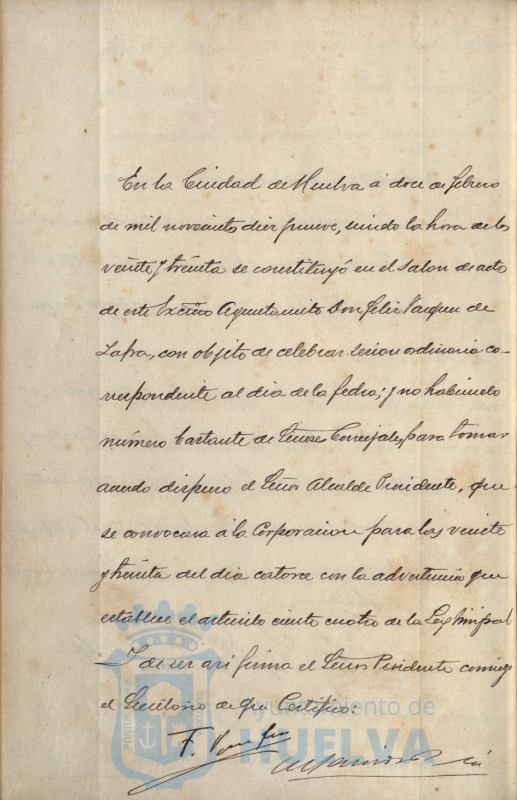 En la Ciudad de Huelva á doce de febrero
de mil novecientos diez y nueve, siendo la hora de las
veinte y treinta se constituyó en el salon de acto
de este Excmo Ayuntamiento Don Felix Vazquez de
Zafra, con objeto de celebrar sesion ordinaria co-
rrespondiente al dia de la fecha; y no habiendo
número bastante de Señores Concejales para tomar
acuerdo dispuso el Señor Alcalde Presidente, que
se convocara á la Corporacion para las veinte
y treinta del dia catorce con la advertencia que
establece el articulo ciento cuatro de la Ley Mnpal
Y de ser asi firma el Señor Presidente conmigo
el Secretario de que Certifico:
F.
Ayuntamiento de
HUELVA